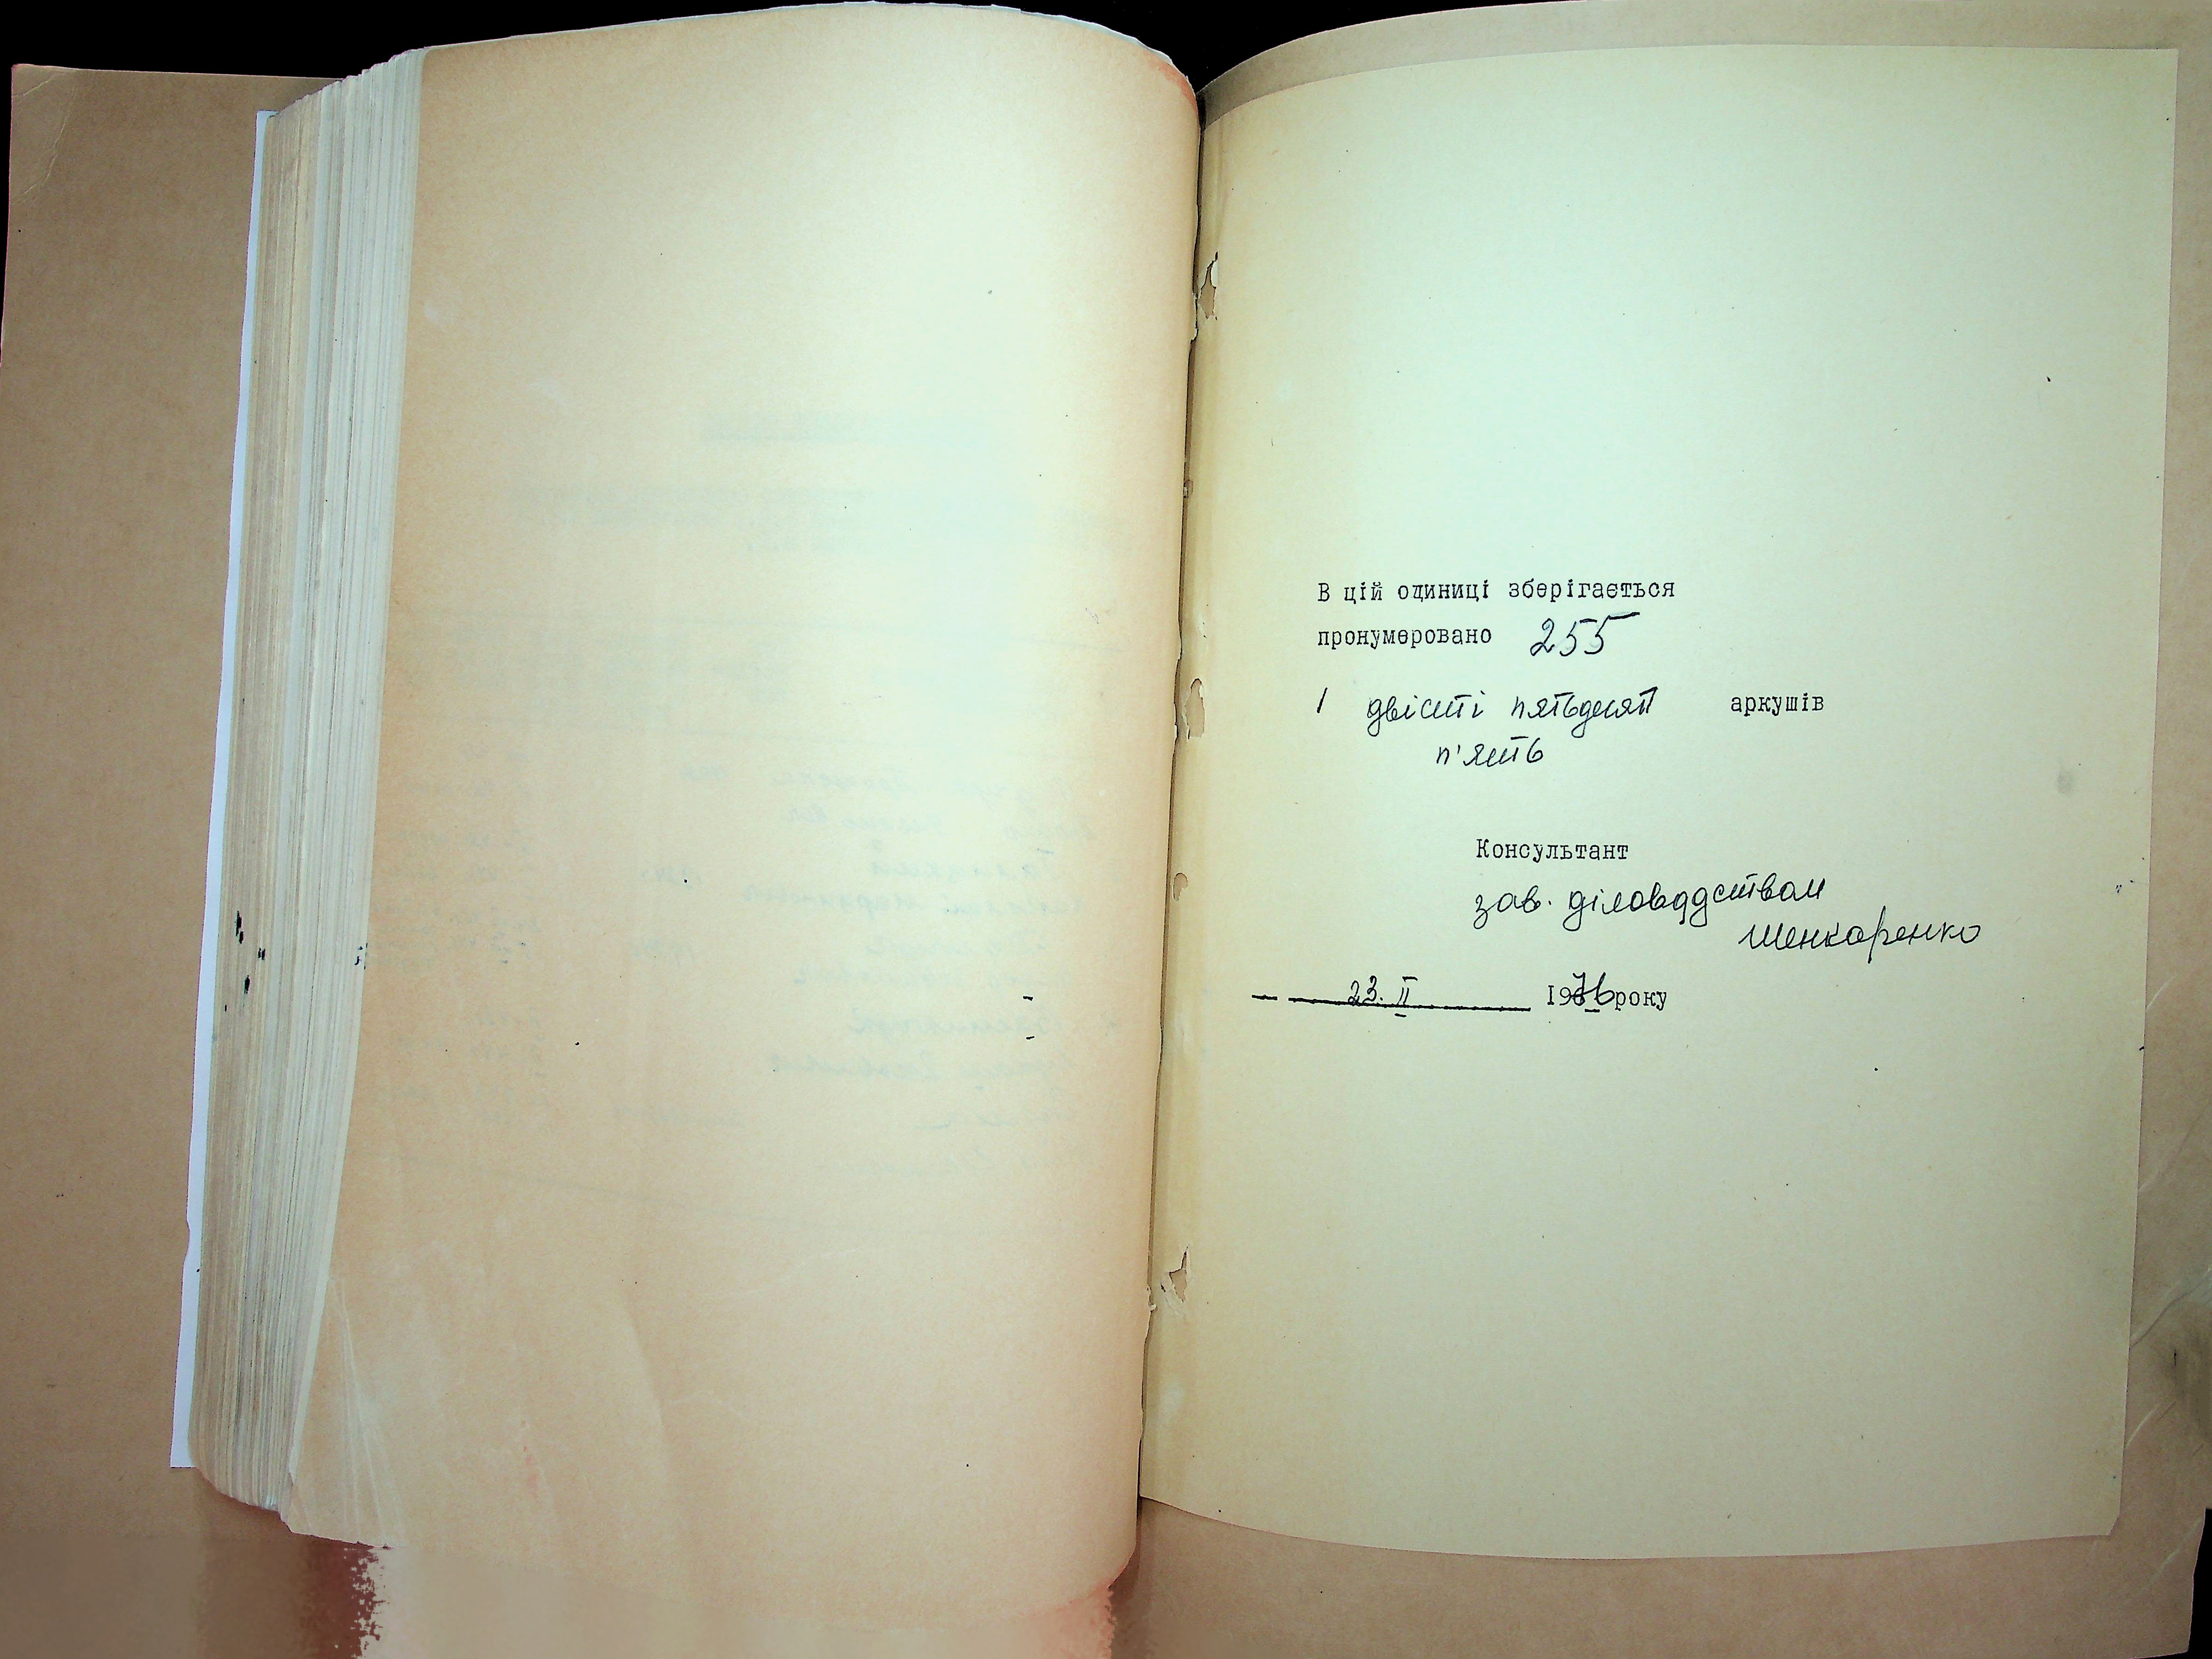 В цій одиниці зберігається
пронумеровано 255
/ двісті пятьдесят аркушів
п'ять
Консультант
зав. діловодством
Шенкаренко
23. II 1976 року